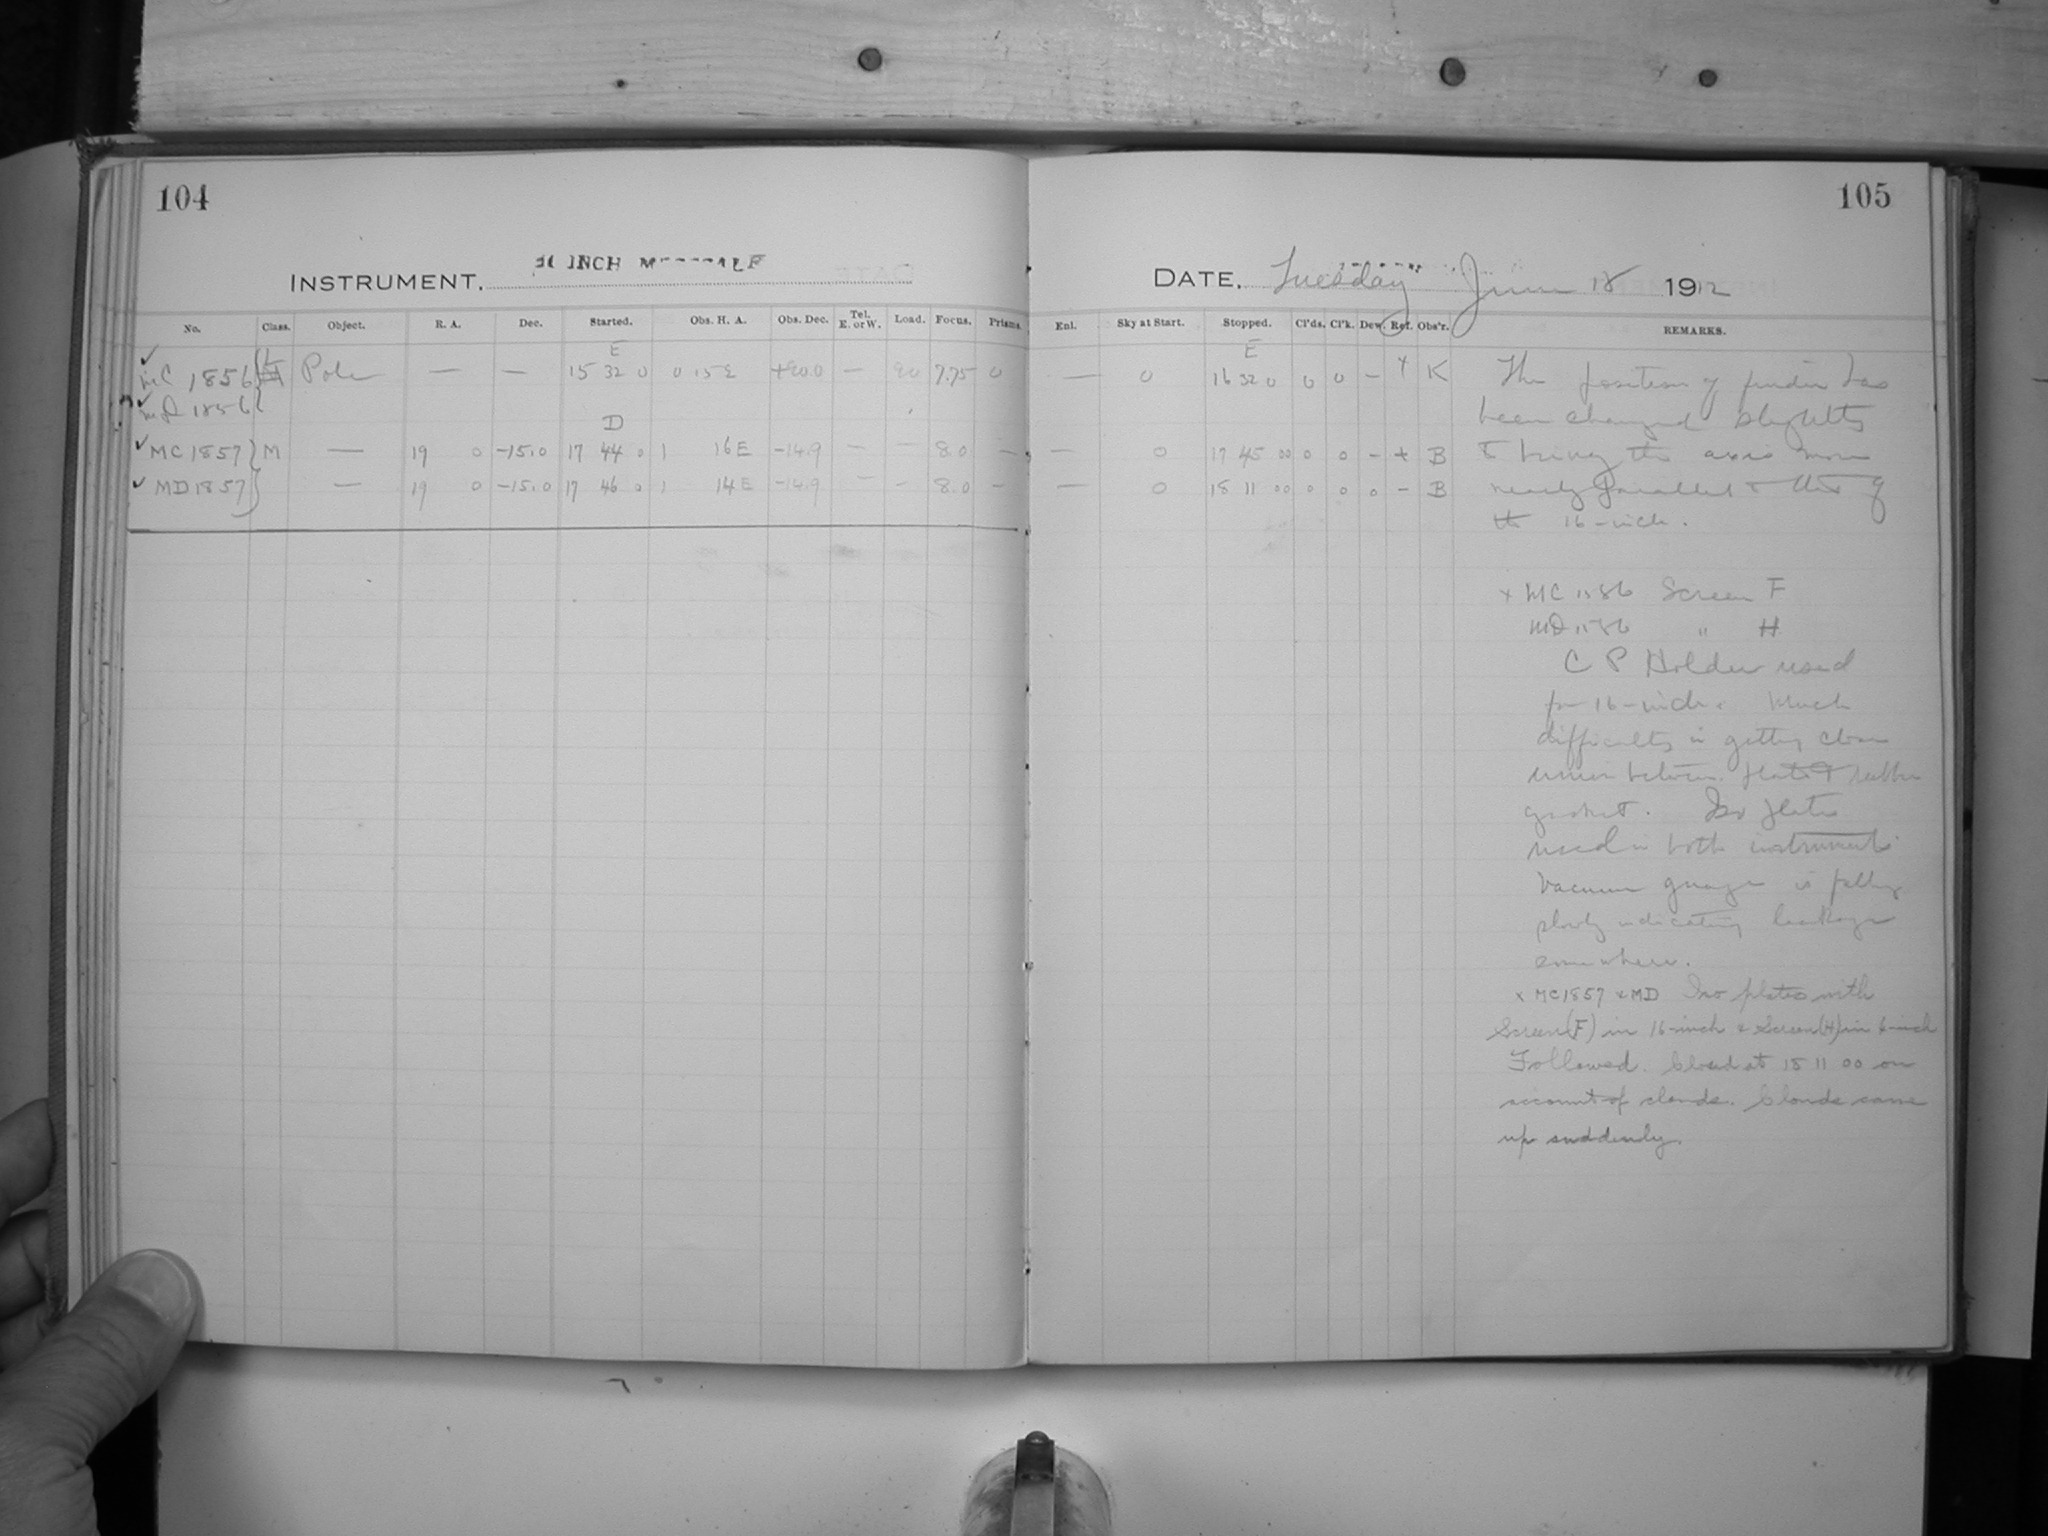 104
INSTRUMENT. INCH
No. Class. Object. R. A. Dec. Started. Obs. H. A. Obs. Dec. Tel. E. or W. Load. Focus. Prisms.
E
MC 1856 L Pole — — 15 32 0 0 15 E +90.0 — 90 7.75 0
MD 1856
D
MC 1857 M — 19 0 -15.0 17 44 0 1 16 E -14.9 — — 8.0 —
MD 1857 — 19 0 -15.0 17 46 0 1 14 E -14.9 — — 8.0 —
105
DATE. Tuesday June 18 1912
Enl. Sky at Start. Stopped. Cl'ds. Cl'k. Dew. Ref. Obs'r. REMARKS.
E
— 0 16 32 0 0 0 — + K
— 0 17 45 00 0 0 - + B
— 0 18 11 00 0 0 0 - B
The position of finder has
been changed slightly
to bring the axis more
nearly parallel to that of
the 16-inch.
x MC 1586 Screen F
MD 1586 " H
C P Holder used
for 16-inch. Much
difficulty in getting close
union between plate & rubber
gasket. Iso plates
used in both instruments
Vacuum guage is falling
slowly indicating leakage
somewhere.
x MC1857 & MD Iso plates with
Screen (F) in 16-inch & Screen (H) in 6-inch
Followed. Closed at 18 11 00 on
account of clouds. Clouds came
up suddenly.